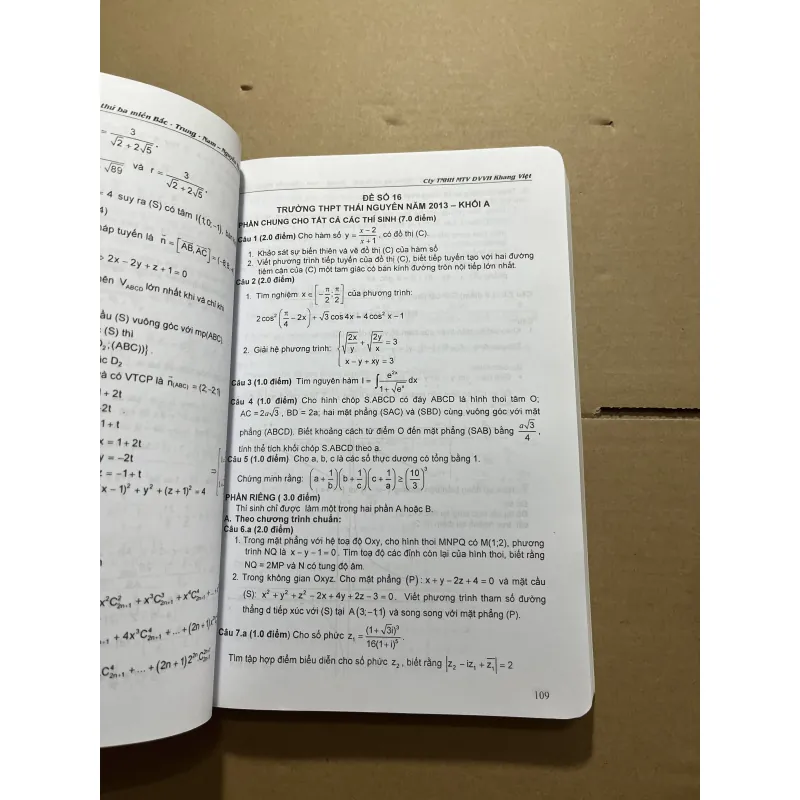 thứ ba miền Bắc - Trung - Nam – Nguyễn
= 3/(√2 + 2√5),
√89 và r = 3/(√2 + 2√5),
= 4 suy ra (S) có tâm I(1;0;-1), bán
4)
háp tuyến là n⃗ = [AB⃗, AC⃗] =
> 2x - 2y + z + 1 = 0
nên V_ABCD lớn nhất khi và chỉ khi
ầu (S) vuông góc với mp(ABC)
(S) thì
D₂; (ABC))}.
ặc D₂
và có VTCP là n⃗_(ABC) = (2;-2;1)
1 + 2t
-2t
1 + t
x = 1 + 2t
y = -2t
z = -1 + t
x - 1)² + y² + (z + 1)² = 4
x²C²₂ₙ₊₁ + x³C³₂ₙ₊₁ + x⁴C⁴₂ₙ₊₁ + ...
+ 4x³C⁴₂ₙ₊₁ + ... + (2n + 1)
C⁴₂ₙ₊₁ + ... + (2n + 1)2²ⁿC²ⁿ⁺¹₂ₙ₊₁
Cty TNHH MTV DVVH Khang Việt
ĐỀ SỐ 16
TRƯỜNG THPT THÁI NGUYÊN NĂM 2013 – KHỐI A
PHẦN CHUNG CHO TẤT CẢ CÁC THÍ SINH (7.0 điểm)
Câu 1 (2.0 điểm) Cho hàm số y = (x - 2)/(x + 1), có đồ thị (C).
1. Khảo sát sự biến thiên và vẽ đồ thị (C) của hàm số
2. Viết phương trình tiếp tuyến của đồ thị (C), biết tiếp tuyến tạo với hai đường
tiệm cận của (C) một tam giác có bán kính đường tròn nội tiếp lớn nhất.
Câu 2 (2.0 điểm)
1. Tìm nghiệm x ∈ [-π/2; π/2] của phương trình:
2cos²(π/4 - 2x) + √3 cos4x = 4cos²x - 1
2. Giải hệ phương trình: { √(2x/y) + √(2y/x) = 3
x - y + xy = 3
Câu 3 (1.0 điểm) Tìm nguyên hàm I = ∫ e²ˣ/(1 + √eˣ) dx
Câu 4 (1.0 điểm) Cho hình chóp S.ABCD có đáy ABCD là hình thoi tâm O;
AC = 2a√3, BD = 2a; hai mặt phẳng (SAC) và (SBD) cùng vuông góc với mặt
phẳng (ABCD). Biết khoảng cách từ điểm O đến mặt phẳng (SAB) bằng a√3/4,
tính thể tích khối chóp S.ABCD theo a.
Câu 5 (1.0 điểm) Cho a, b, c là các số thực dương có tổng bằng 1.
Chứng minh rằng: (a + 1/b)(b + 1/c)(c + 1/a) ≥ (10/3)³
PHẦN RIÊNG ( 3.0 điểm)
Thí sinh chỉ được làm một trong hai phần A hoặc B.
A. Theo chương trình chuẩn:
Câu 6.a (2.0 điểm)
1. Trong mặt phẳng với hệ toạ độ Oxy, cho hình thoi MNPQ có M(1;2), phương
trình NQ là x - y - 1 = 0. Tìm toạ độ các đỉnh còn lại của hình thoi, biết rằng
NQ = 2MP và N có tung độ âm.
2. Trong không gian Oxyz. Cho mặt phẳng (P): x + y - 2z + 4 = 0 và mặt cầu
(S): x² + y² + z² - 2x + 4y + 2z - 3 = 0. Viết phương trình tham số đường
thẳng d tiếp xúc với (S) tại A(3;-1;1) và song song với mặt phẳng (P).
Câu 7.a (1.0 điểm) Cho số phức z₁ = (1 + √3i)⁹/(16(1 + i)⁵).
Tìm tập hợp điểm biểu diễn cho số phức z₂, biết rằng |z₂ - iz₁ + z̄₁| = 2
109